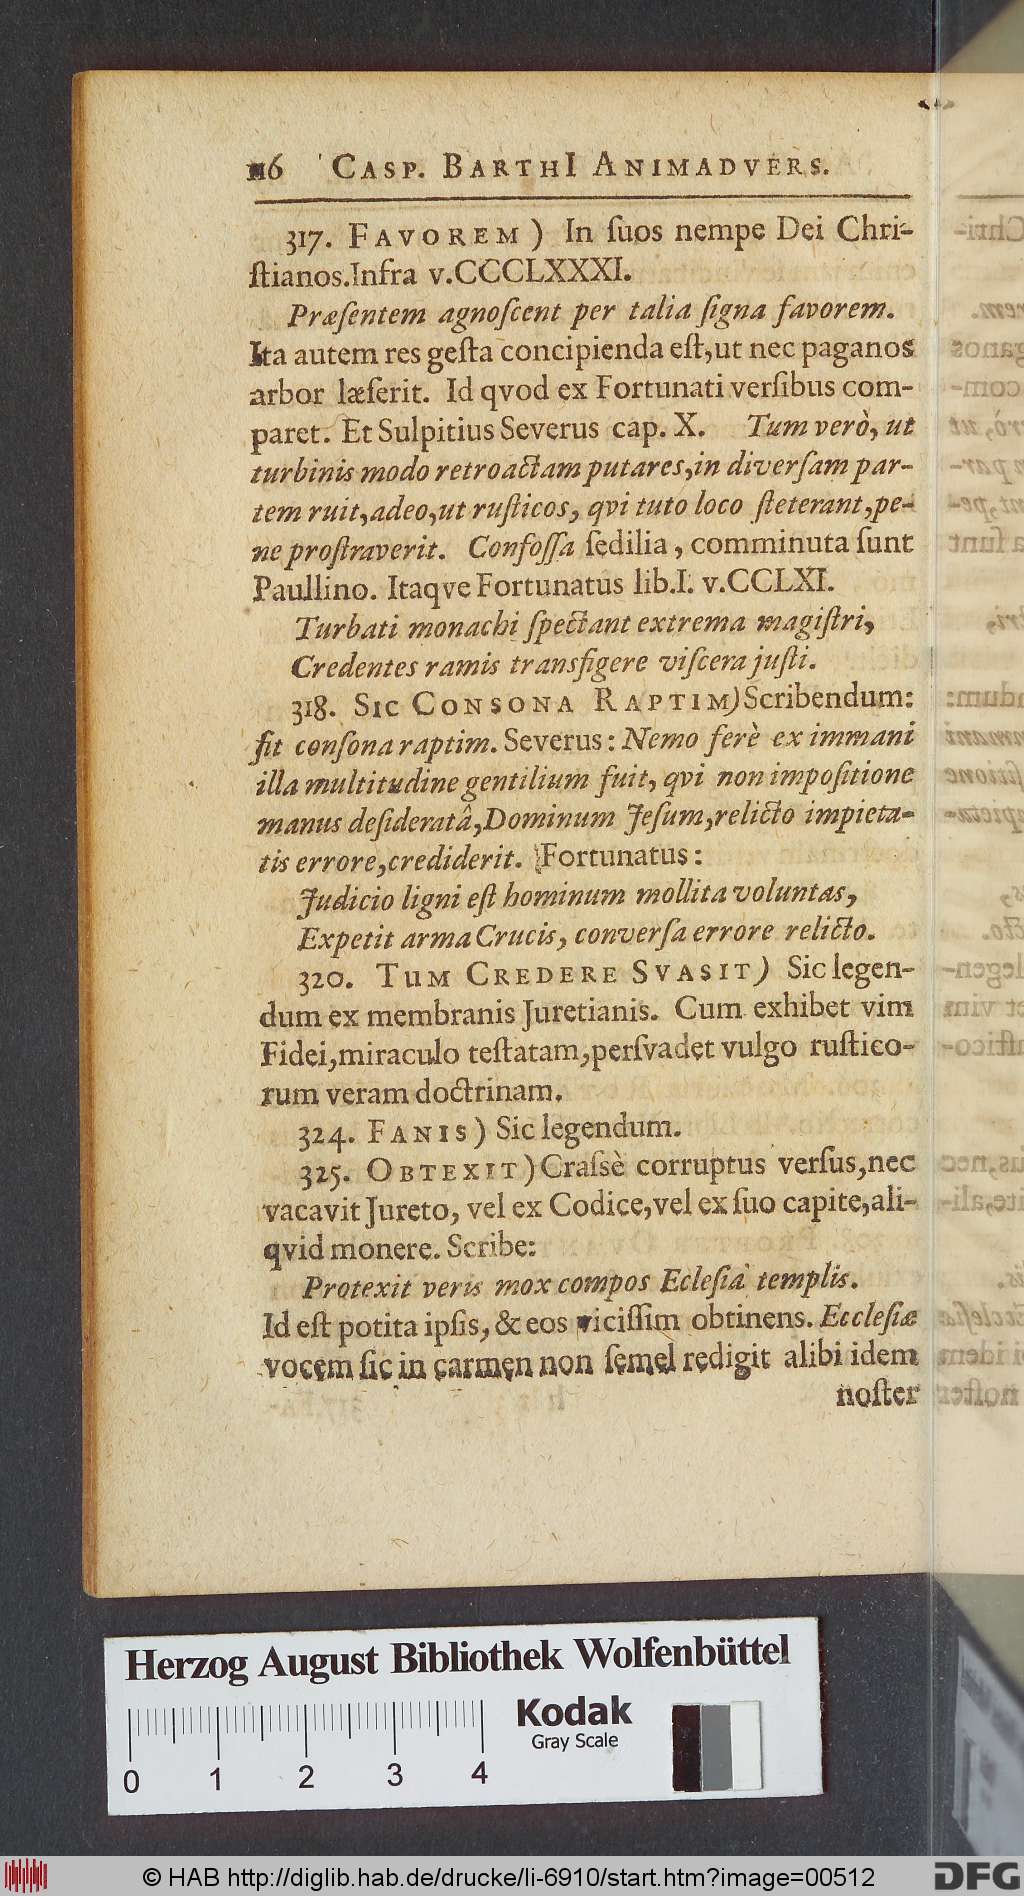 116 CASP. BARTHI ANIMADVERS.
317. FAVOREM) In ſuos nempe Dei Chri-
ſtianos. Infra v. CCCLXXXI.
Præſentem agnoſcent per talia ſigna favorem.
Ita autem res geſta concipienda eſt, ut nec paganos
arbor læſerit. Id qvod ex Fortunati verſibus com-
paret. Et Sulpitius Severus cap. X. Tum verò, ut
turbinis modo retroactam putares, in diverſam par-
tem ruit, adeo, ut ruſticos, qvi tuto loco ſteterant, pe-
ne proſtraverit. Confoſſa ſedilia, comminuta ſunt
Paullino. Itaqve Fortunatus lib. I. v. CCLXI.
Turbati monachi ſpectant extrema magiſtri,
Credentes ramis transfigere viſcera juſti.
318. SIC CONSONA RAPTIM) Scribendum:
fit conſona raptim. Severus: Nemo ferè ex immani
illa multitudine gentilium fuit, qvi non impoſitione
manus deſideratâ, Dominum Jeſum, relicto impieta-
tis errore, crediderit. Fortunatus:
Judicio ligni eſt hominum mollita voluntas,
Expetit arma Crucis, converſa errore relicto.
320. TUM CREDERE SVASIT) Sic legen-
dum ex membranis Juretianis. Cum exhibet vim
Fidei, miraculo teſtatam, perſvadet vulgo ruſtico-
rum veram doctrinam.
324. FANIS) Sic legendum.
325. OBTEXIT) Craſsè corruptus verſus, nec
vacavit Jureto, vel ex Codice, vel ex ſuo capite, ali-
qvid monere. Scribe:
Protexit veris mox compos Ecleſia templis.
Id eſt potita ipſis, & eos viciſſim obtinens. Eccleſiæ
vocem ſic in carmen non ſemel redigit alibi idem
noſter
Herzog August Bibliothek Wolfenbüttel
Kodak
Gray Scale
0 1 2 3 4
© HAB http://diglib.hab.de/drucke/li-6910/start.htm?image=00512
DFG